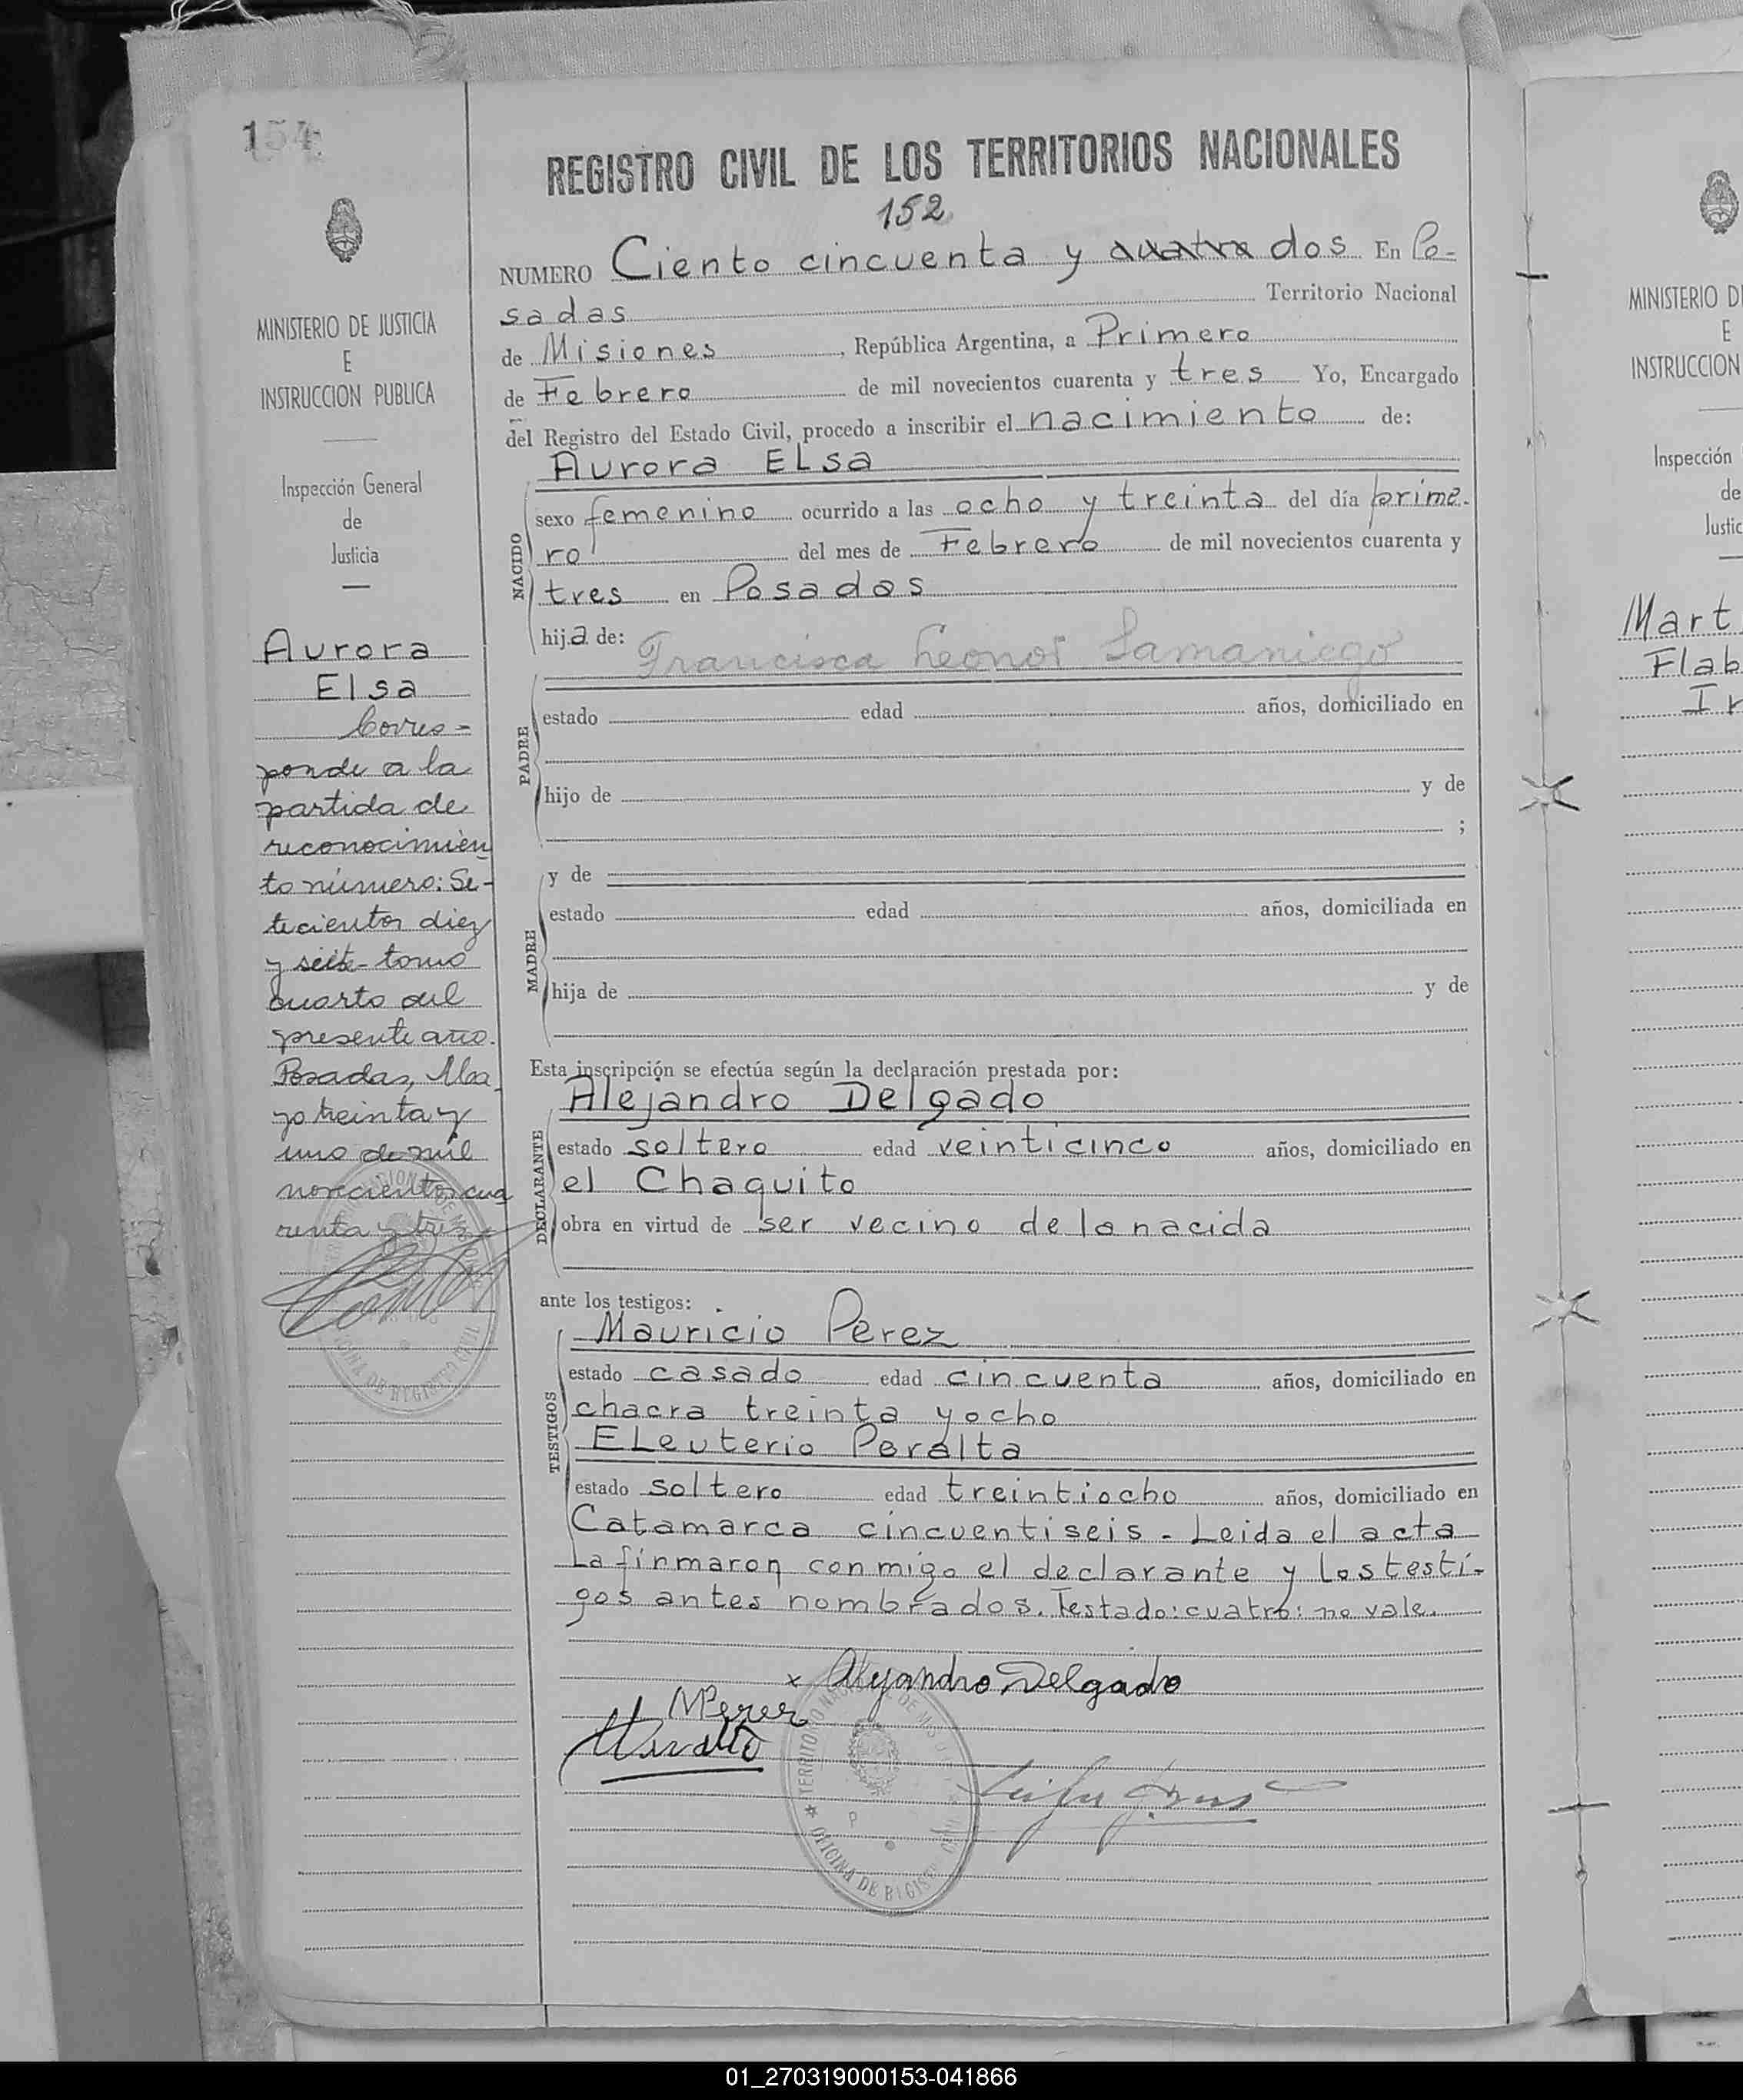 154
REGISTRO CIVIL DE LOS TERRITORIOS NACIONALES
152
NUMERO Ciento cincuenta y cuatro dos En Po-
sadas Territorio Nacional
de Misiones, República Argentina, a Primero
de Febrero de mil novecientos cuarenta y tres Yo, Encargado
del Registro del Estado Civil, procedo a inscribir el nacimiento de:
Aurora Elsa
NACIDO
sexo femenino ocurrido a las ocho y treinta del día prime-
ro del mes de Febrero de mil novecientos cuarenta y
tres en Posadas
hija de: Francisca Leonor Samaniego
PADRE
estado edad años, domiciliado en
hijo de y de
;
MADRE
y de
estado edad años, domiciliada en
hija de y de
Esta inscripción se efectúa según la declaración prestada por:
Alejandro Delgado
DECLARANTE
estado soltero edad veinticinco años, domiciliado en
el Chaquito
obra en virtud de ser vecino de la nacida
ante los testigos:
Mauricio Perez
TESTIGOS
estado casado edad cincuenta años, domiciliado en
chacra treinta y ocho
Eleuterio Peralta
estado soltero edad treintiocho años, domiciliado en
Catamarca cincuentiseis - Leida el acta
La finmaron conmigo el declarante y los testi-
gos antes nombrados. Testado: cuatro: no vale.
x Alejandro Delgado
MPerez
TERRITORIO NACIONAL DE MISIONES
OFICINA DE REGISTRO CIVIL
MINISTERIO DE JUSTICIA
E
INSTRUCCION PUBLICA
Inspección General
de
Justicia
Aurora
Elsa
Corres-
ponde a la
partida de
reconocimien
to número: Se-
tecientos diez
y siete - tomo
cuarto del
presente año.
Posadas, Ma
yo treinta y
uno de mil
novecientos cua
renta y tres
OFICINA DE REGISTRO CIVIL
MINISTERIO D
E
INSTRUCCION
Inspección
de
Justic
Mart
Flab
Ir
01_270319000153-041866